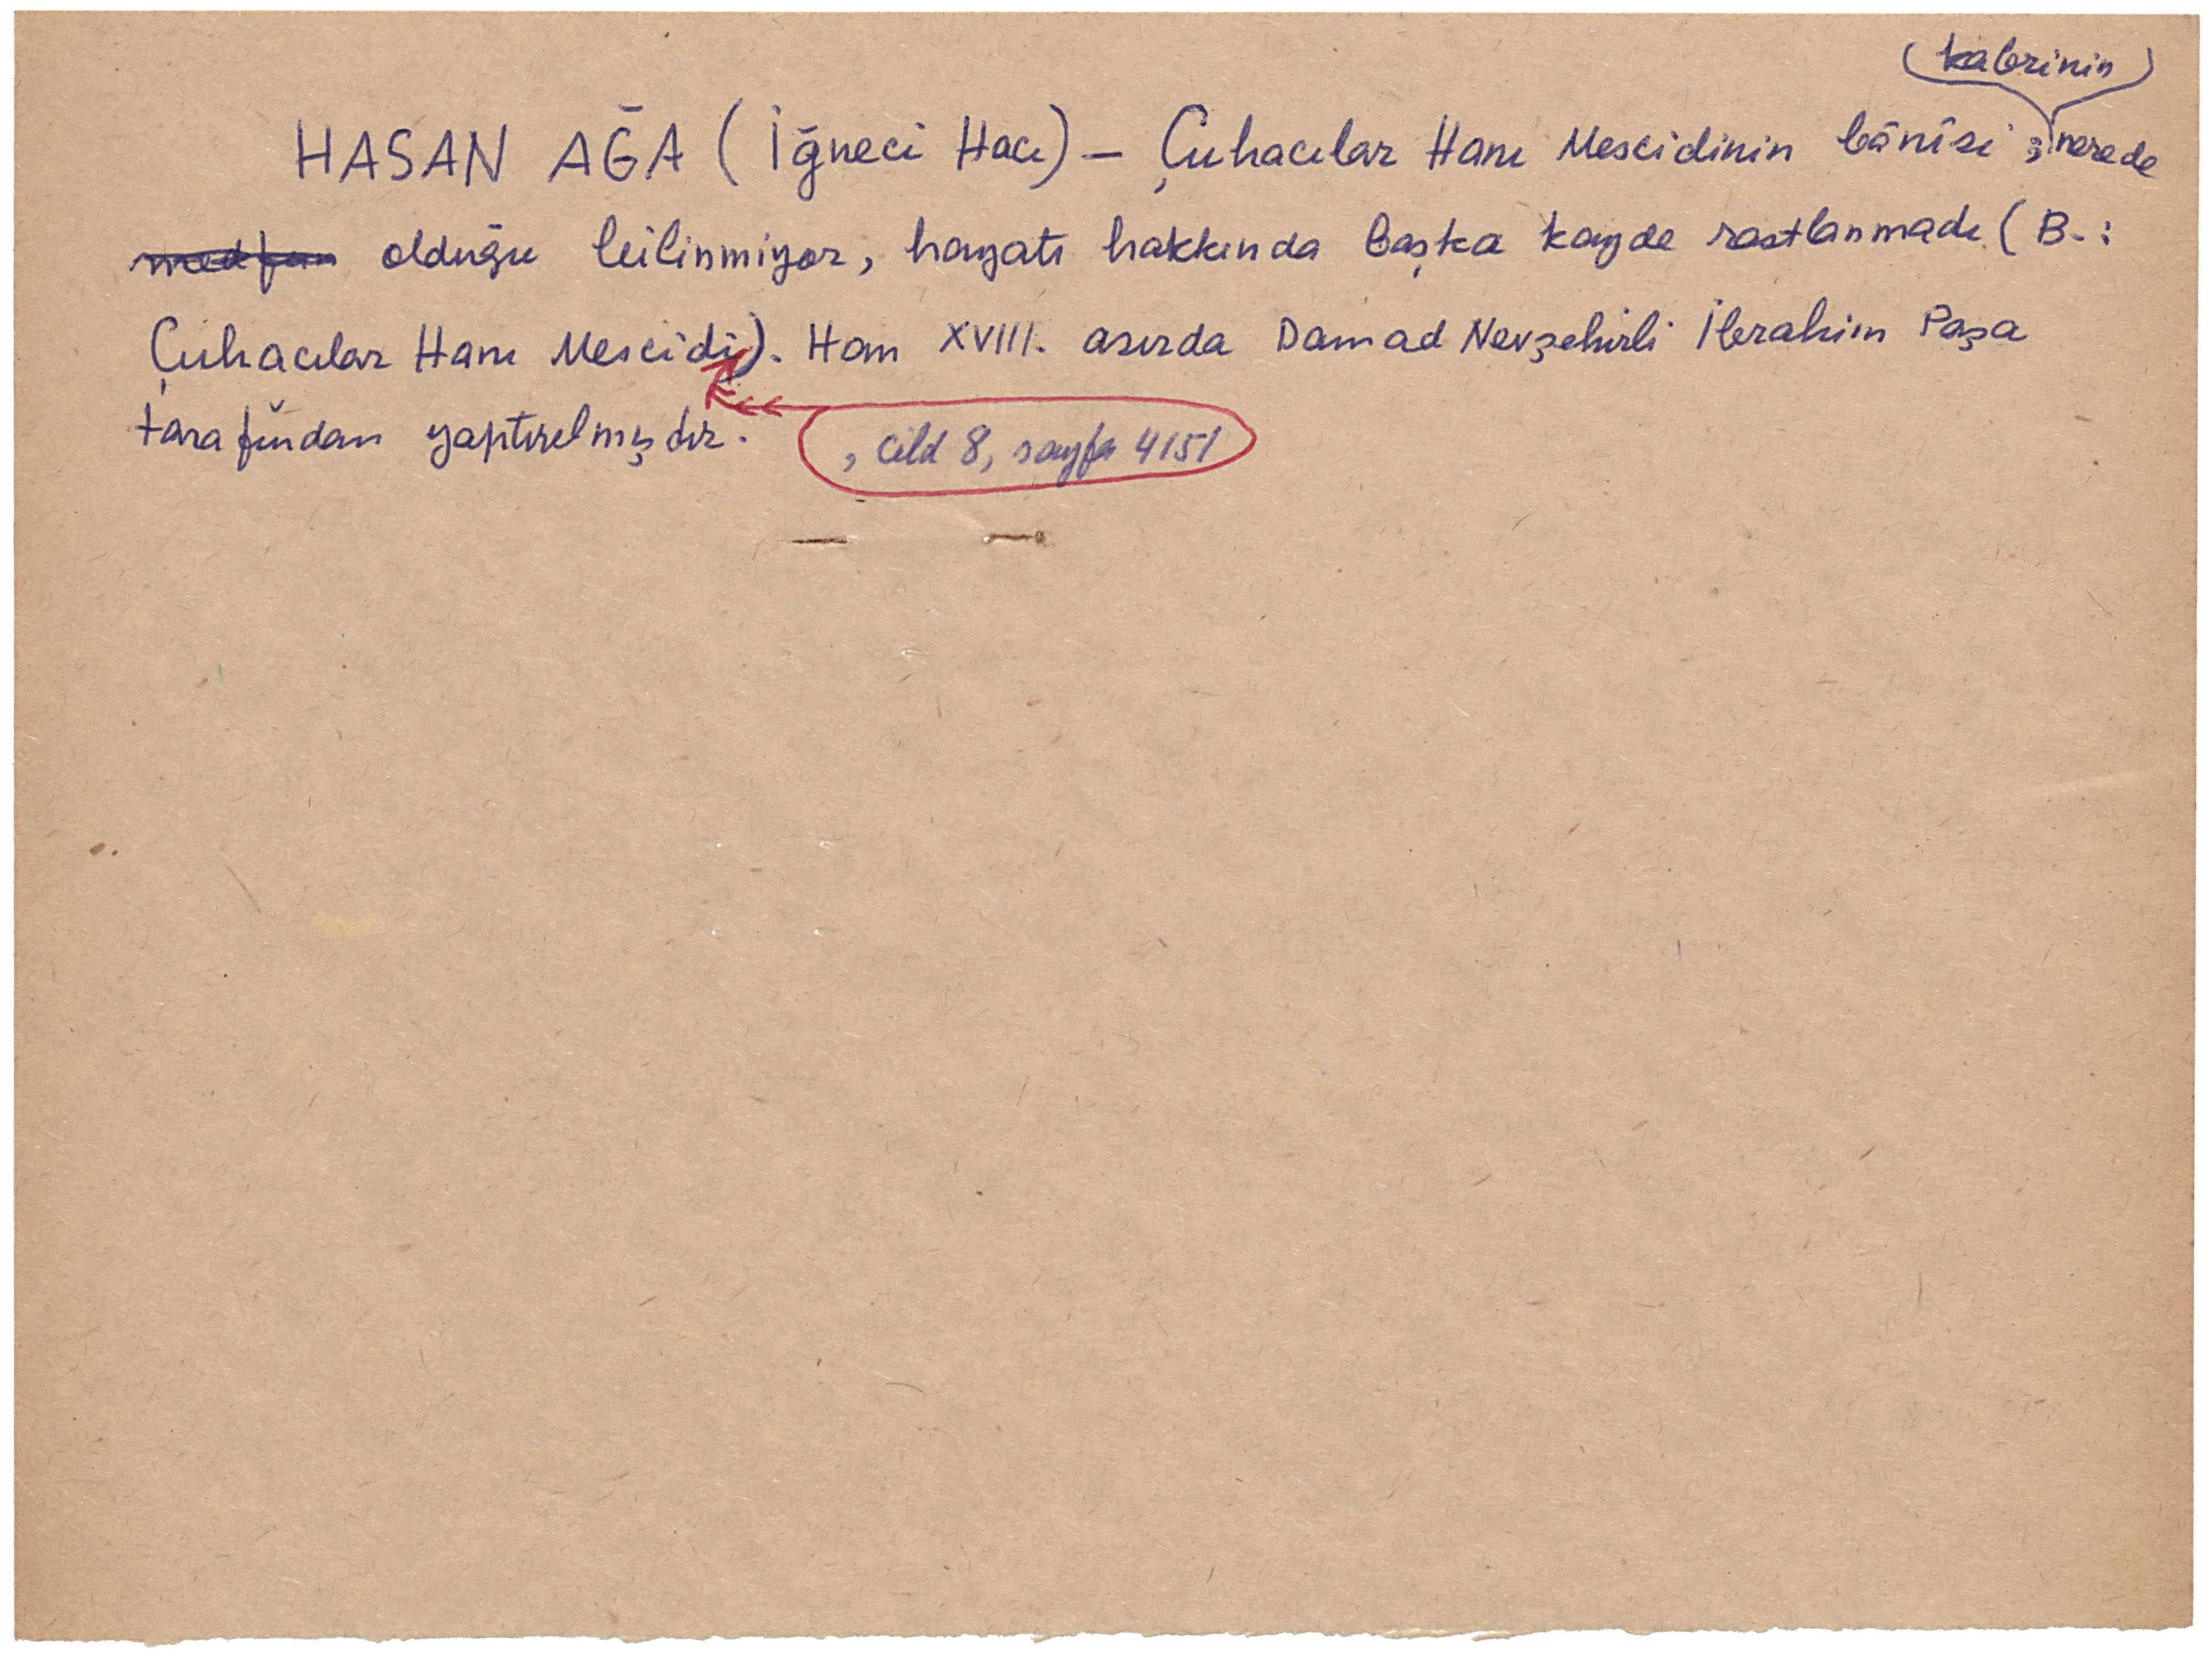 (kabrinin)
HASAN AĞA (İğneci Hacı) — Çuhacılar Hanı Mescidinin bânîsi ; nerede
medfun olduğu bilinmiyor, hayatı hakkında başka kayde rastlanmadı (B. :
Çuhacılar Hanı Mescidi). Han XVIII. asırda Damad Nevşehirli İbrahim Paşa
tarafından yaptırılmışdır.
, cild 8, sayfa 4151